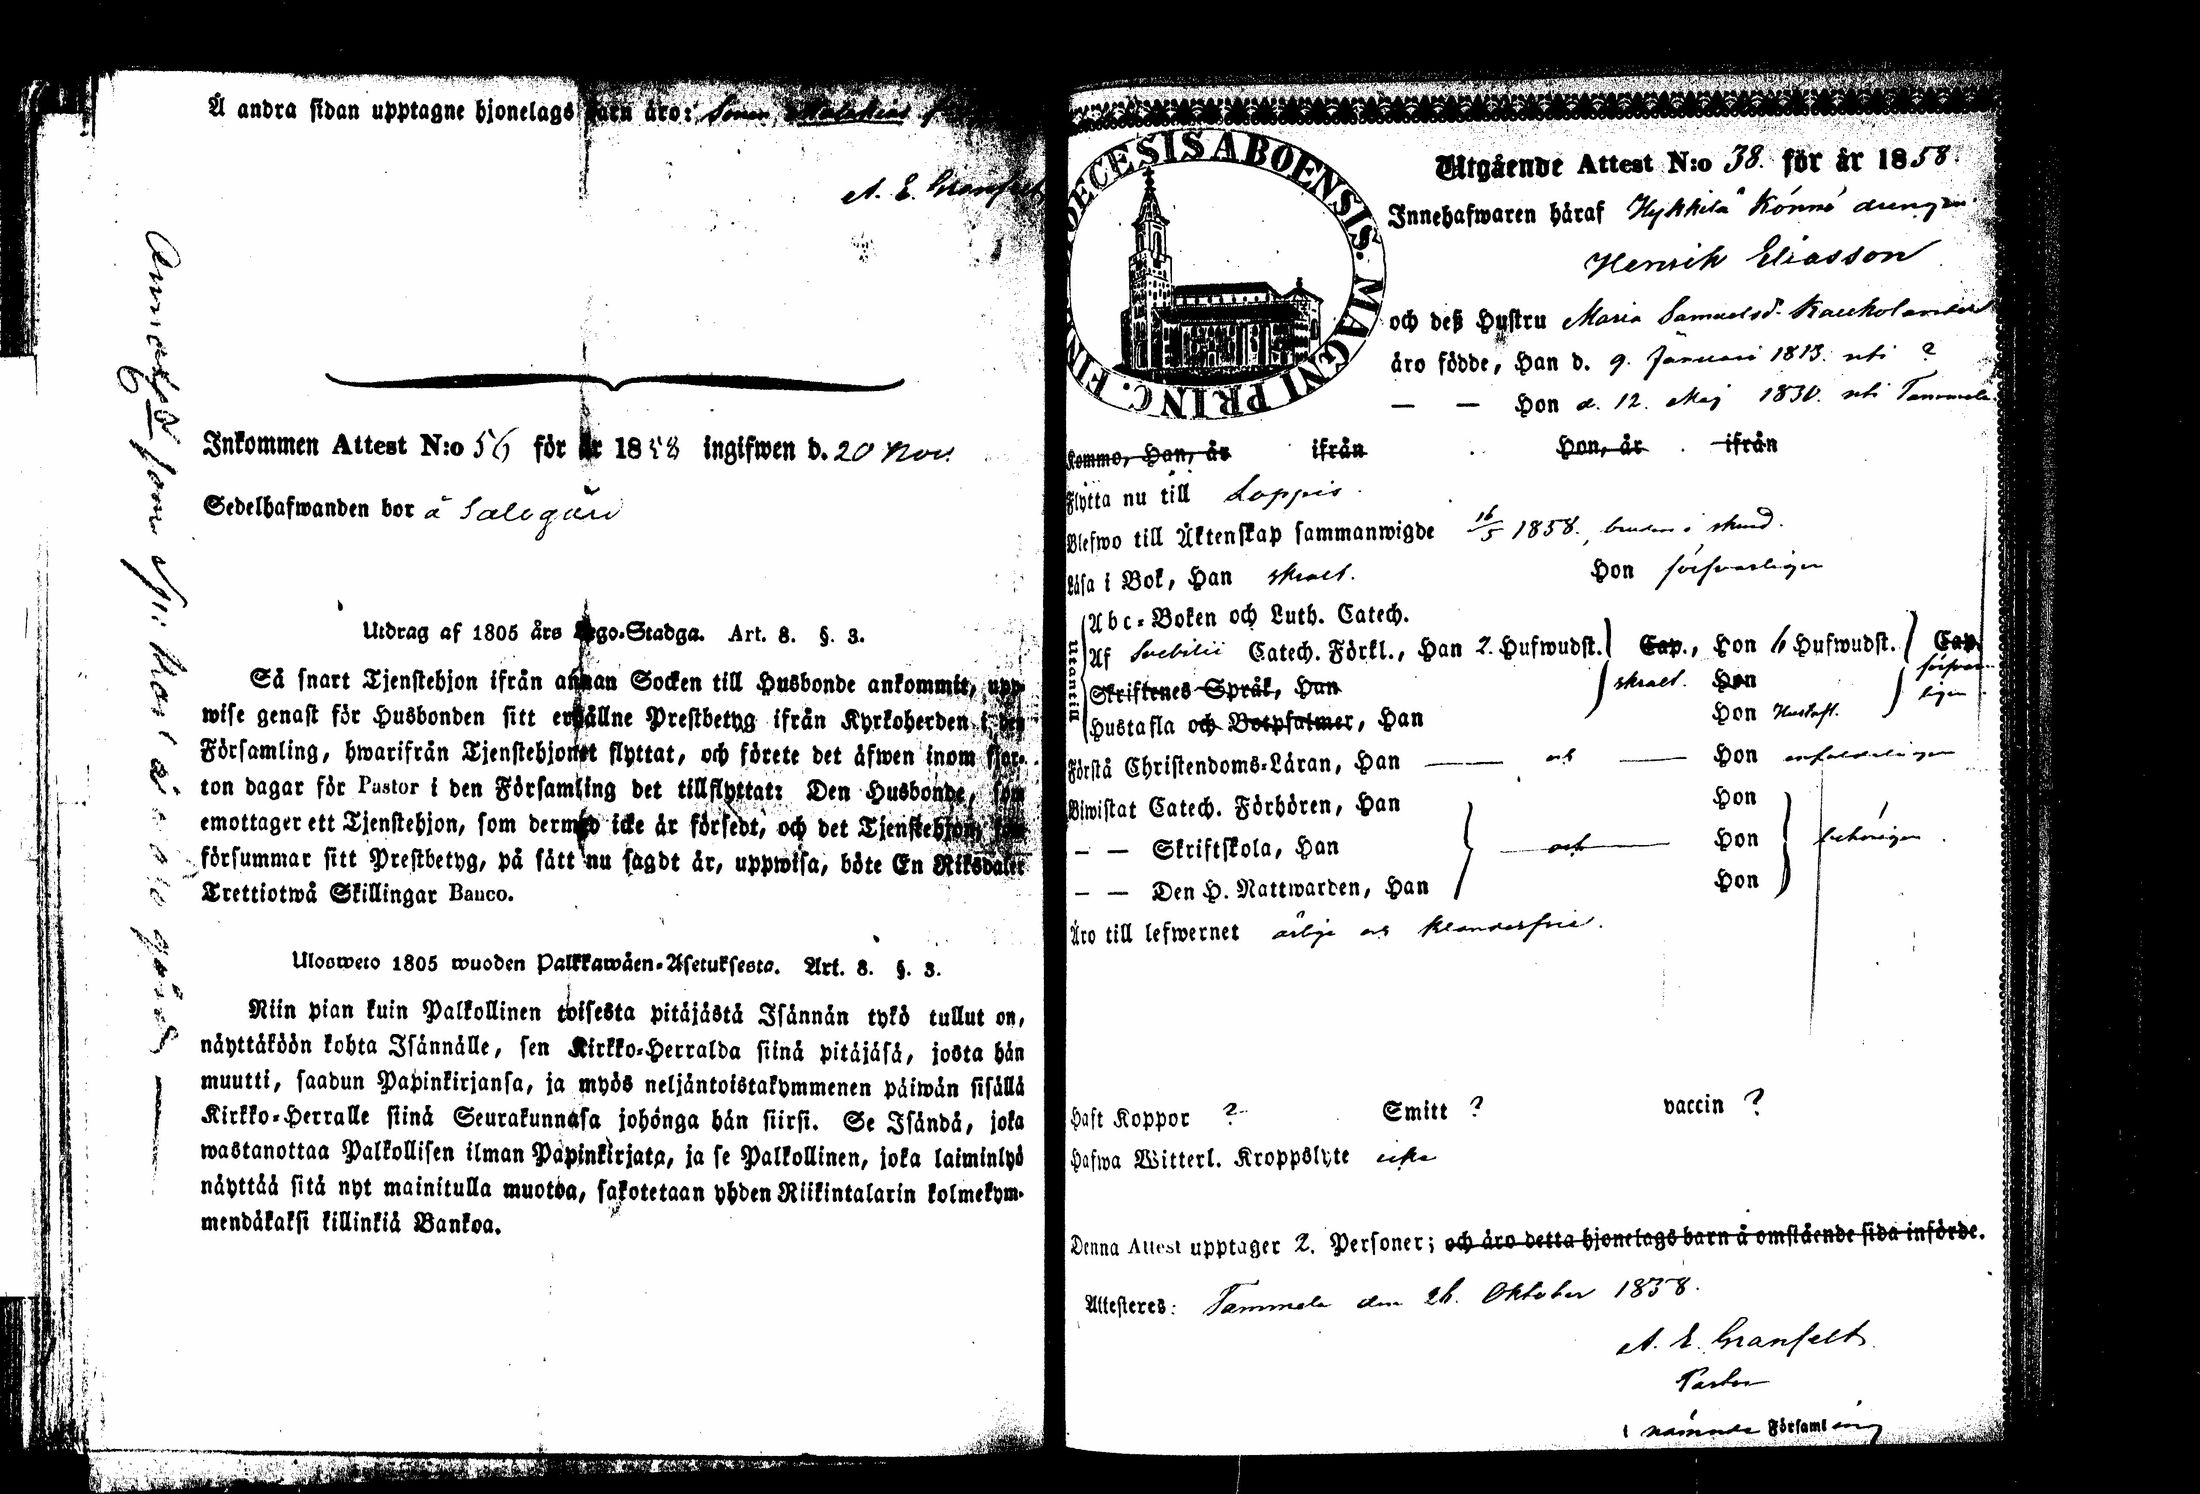 Å andra sidan upptagne hjonelags barn äro: Sonen
A. E. Granfelt
Inkommen Attest N:o 56 för år 1858 ingifwen d. 20 Nov.
Sedelhafwanden bor å
Utdrag af 1805 års Lego-Stadga. Art. 8. §. 3.
Så snart Tjenstehjon ifrån annan Socken till Husbonde ankommit, upp-
wise genast för Husbonden sitt erhållne Prestbetyg ifrån Kyrkoherden i den
Församling, hwarifrån Tjenstehjonet flyttat, och förete det äfwen inom fjor-
ton dagar för Pastor i den Församling det tillflyttat: Den Husbonde, som
emottager ett Tjenstehjon, som dermed icke är försedt, och det Tjenstehjon, som
försummar sitt Prestbetyg, på sätt nu sagdt är, uppwisa, böte En Riksdaler
Trettiotwå Skillingar Banco.
Ulosweto 1805 wuoden Palkkawäen-Asetuksesta. Art. 8. §. 3.
Niin pian kuin Palkollinen toisesta pitäjästä Isännän tykö tullut on,
näyttäköön kohta Isännälle, sen Kirkko-Herralda siinä pitäjäsä, josta hän
muutti, saadun Papinkirjansa, ja myös neljäntoistakymmenen päiwän sisällä
Kirkko-Herralle siinä Seurakunnasa johönga hän siirsi. Se Isändä, joka
wastanottaa Palkollisen ilman Papinkirjata, ja se Palkollinen, joka laiminlyö
näyttää sitä nyt mainitulla muotoa, sakotetaan yhden Riikintalarin kolmekym-
mendäkaksi killinkiä Bankoa.
DIOECESIS ABOENSIS. MAGNI PRINC. FINL
Utgående Attest N:o 38. för år 1858.
Innehafwaren häraf Hykkilä Könnö drengen
Henrik Eliasson
och deß Hustru Maria Samuelsd:
äro födde, Han d. 9. Januari 1813. uti ?
— — Hon d. 12. Maj 1830. uti Tammela
Kommo, Han, år ifrån Hon, år ifrån
Flytta nu till Loppis.
Blefwo till Äktenskap sammanwigde 16/5 1858., bruden i skrud.
Läsa i Bok, Han skralt. Hon förswarligen
Utantill
Abc-Boken och Luth. Catech.
Af Svebilii Catech. Förkl., Han 2. Hufwudst. Cap., Hon 6 Hufwudst. Cap.
Skriftenes Språk, Han skralt. Hon förswarligen
Hustafla och Botpsalmer, Han Hon Hustafl.
Förstå Christendoms-Läran, Han och Hon enfaldeligen
Biwistat Catech. Förhören, Han Hon
— — Skriftskola, Han och Hon behörigen.
— — Den H. Nattwarden, Han Hon
Äro till lefwernet ärlige och klanderfrie.
Haft Koppor ? Smitt ? vaccin ?
Hafwa Witterl. Kroppslyte icke
Denna Attest upptager 2. Personer; och äro detta hjonelags barn å omstående sida införde.
Attesteres: Tammela den 26. Oktober 1858.
A. E. Granfelt
Pastor
i nämnde Församling